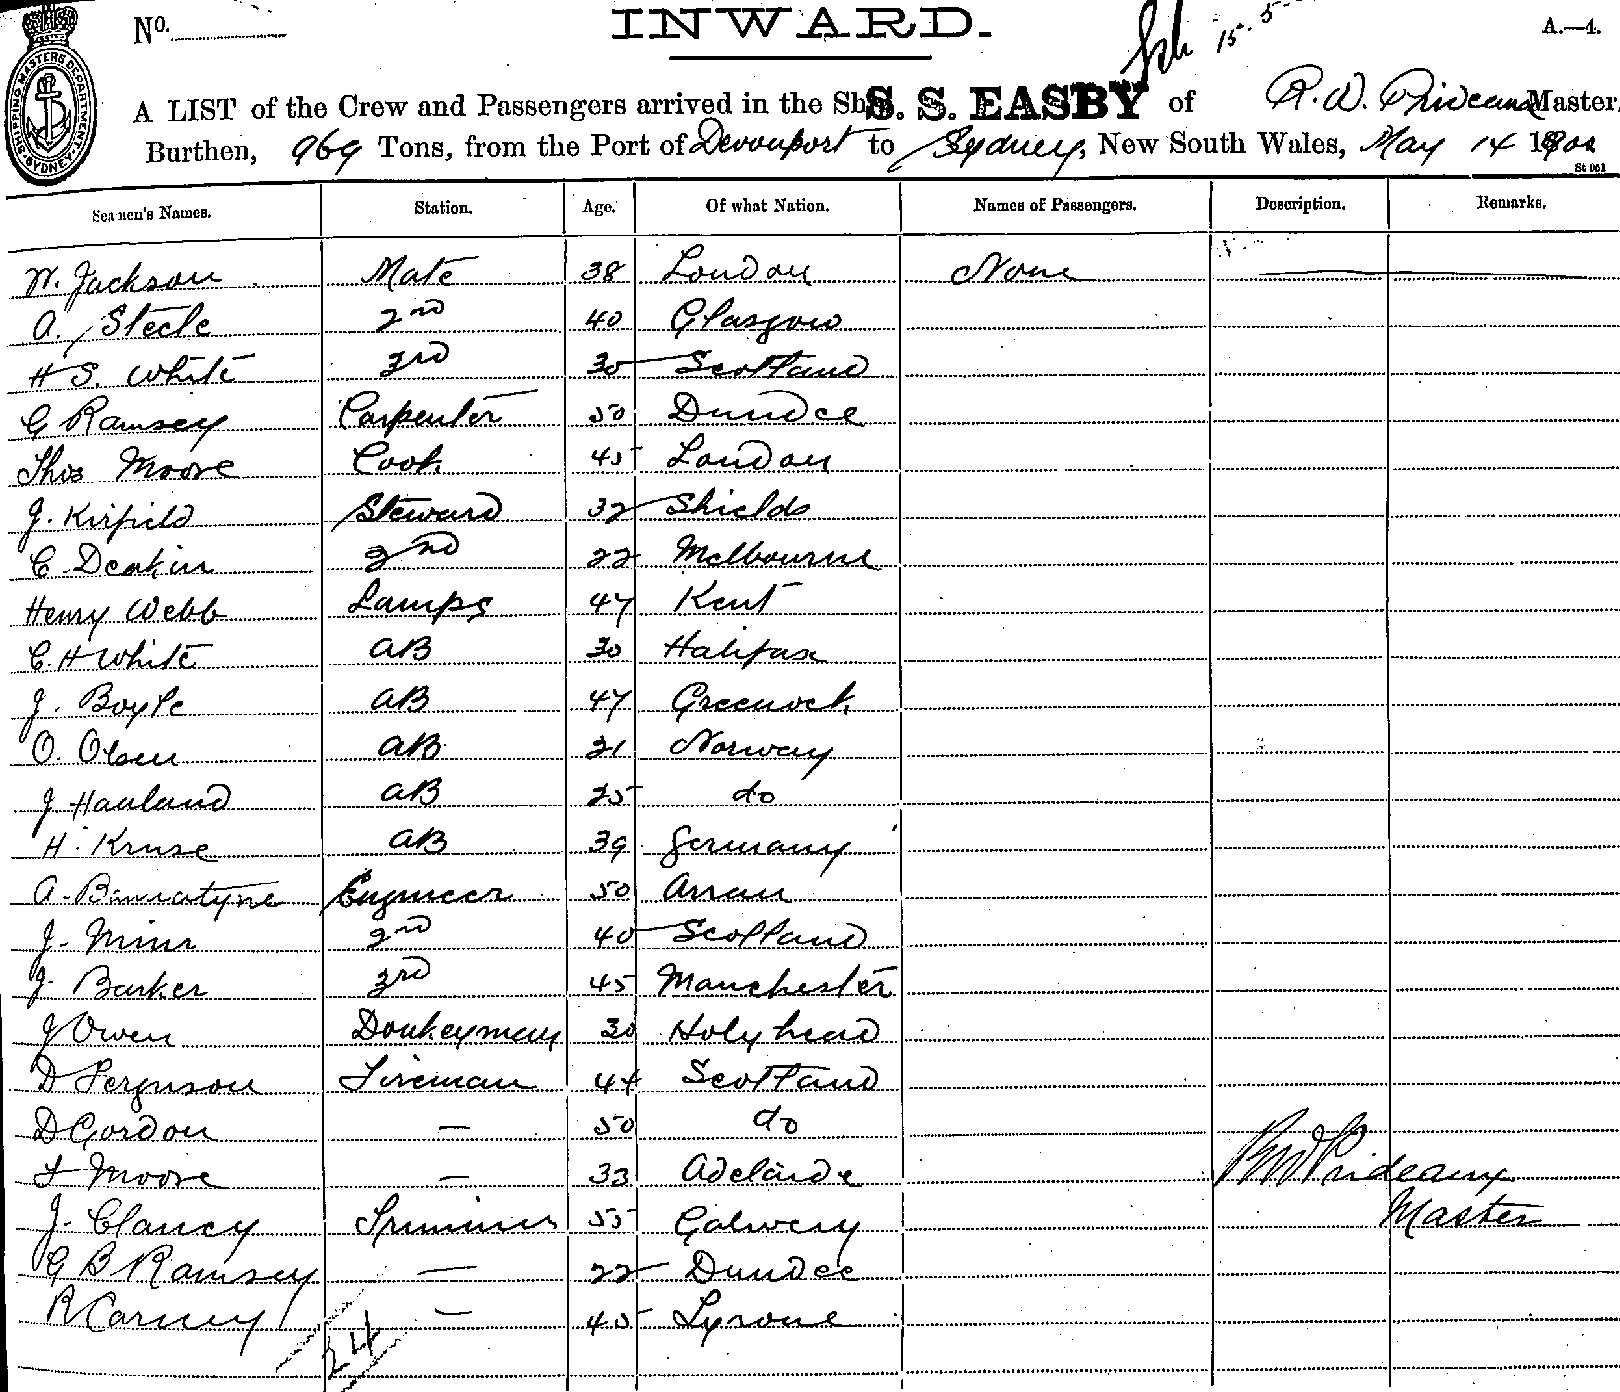 No. INWARD. 15-5- A.—4.
SHIPPING MASTERS DEPARTMENT SYDNEY
A LIST of the Crew and Passengers arrived in the Sh S. S. EASBY of R. W. Prideaux Master,
Burthen, 969 Tons, from the Port of Devonport to Sydney, New South Wales, May 14 1900
St 061
Seamen's Names. Station. Age. Of what Nation. Names of Passengers. Description. Remarks.
W. Jackson Mate 38 London None
A. Steele 2nd 40 Glasgow
H S. White 3rd 30 Scotland
G Ramsey Carpenter 50 Dundee
Thos Moore Cook 45 London
J. Kirfield Steward 32 Shields
C Deakin 2nd 22 Melbourne
Henry Webb Lamps 47 Kent
C. H White AB 30 Halifax
J. Boyle AB 47 Greenock
O. Olsen AB 21 Norway
J Hauland AB 25 do
H. Kruse AB 39 Germany
A. Bannatyne Engineer 50 Arran
J. 2nd 40 Scotland
J. Barker 3rd 45 Manchester
J Owen Donkeyman 30 Holyhead
D Ferguson Fireman 44 Scotland
D Gordon — 50 do
F Moore — 33 Adelaide RWPrideaux
J. Clancy Trimmer 55 Galway Master
G B Ramsey — 22 Dundee
R Carney — 45 Tyrone
24